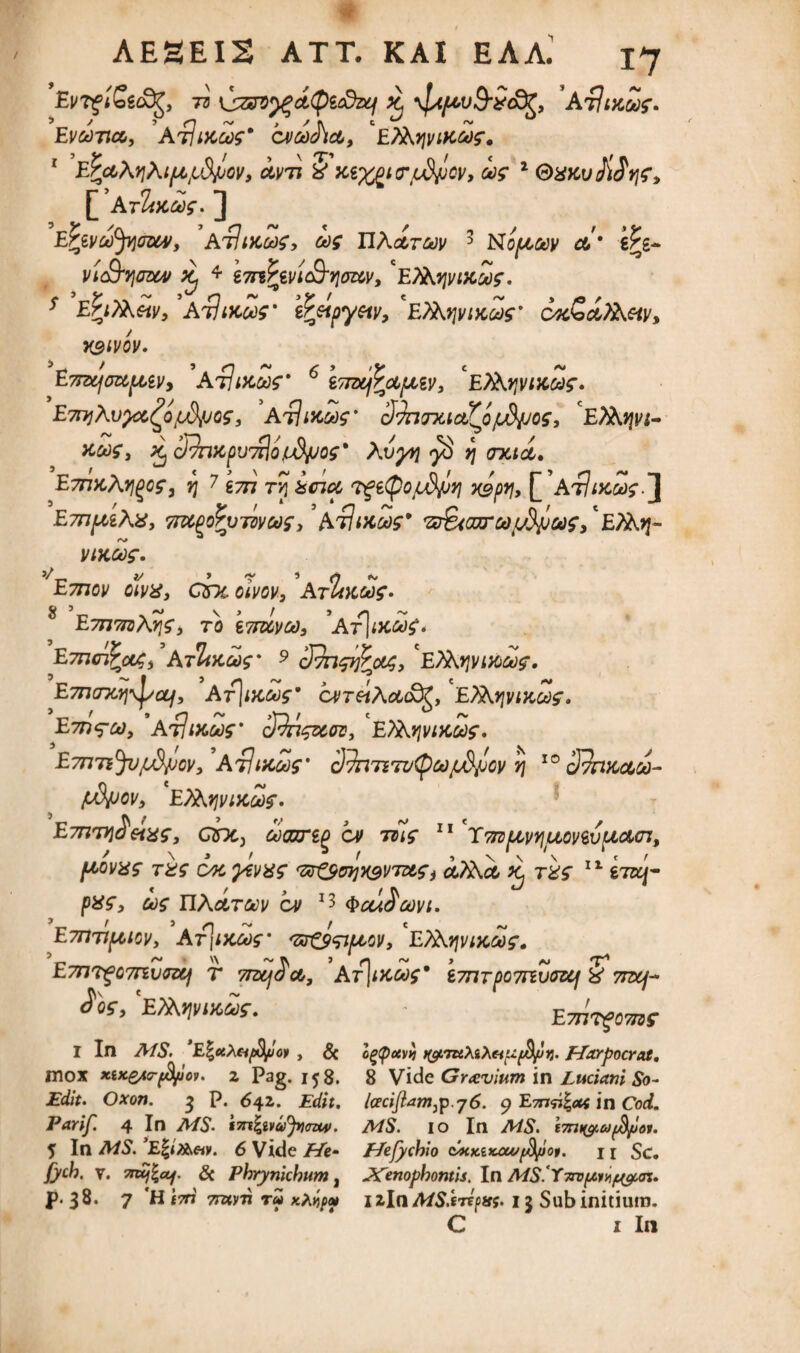 ΛΕΞΕΙΣ ΑΤΤ. ΚΑΙ ΕΛΛ. 17
Ἐντρίβεσθαι, τὸ ὑπογράφεσθαι καὶ ψιμυθοῦσθαι, Ἀττικῶς.
Ἐνώτια, Ἀττικῶς· ἐνώδια, Ἑλληνικῶς.
¹ Ἐξαληλιμμένον, ἀντὶ τοῦ κεχρισμένον, ὡς ² Θουκυδίδης,
[Ἀττικῶς.]
Ἐξενώθησαν, Ἀττικῶς, ὡς Πλάτων ³ Νόμων α΄· ἐξε-
νίσθησαν καὶ ⁴ ἐπεξενίσθησαν, Ἑλληνικῶς.
⁵ Ἐξίλλειν, Ἀττικῶς· ἐξείργειν, Ἑλληνικῶς· ἐκβάλλειν,
κοινόν.
Ἐπαίσαμεν, Ἀττικῶς· ⁶ ἐπαίξαμεν, Ἑλληνικῶς.
Ἐπηλυγαζόμενος, Ἀττικῶς· ἐπισκιαζόμενος, Ἑλληνι-
κῶς, καὶ ἐπικρυπτόμενος· λύγη γὰρ ἡ σκιά.
Ἐπίκληρος, ἡ ⁷ ἐπὶ τῇ οὐσίᾳ τρεφομένη κόρη, [Ἀττικῶς.]
Ἐπιμελοῦ, παροξυτόνως, Ἀττικῶς· περισπωμένως, Ἑλλη-
νικῶς.
Ἔπιον οἴνου, οὐκ οἶνον, Ἀττικῶς.
⁸ Ἐπιπολῆς, τὸ ἐπάνω, Ἀττικῶς.
Ἐπισίξας, Ἀττικῶς· ⁹ ἐπιστήξας, Ἑλληνικῶς.
Ἐπισκῆψαι, Ἀττικῶς· ἐντείλασθαι, Ἑλληνικῶς.
Ἐπίστω, Ἀττικῶς· ἐπίστασο, Ἑλληνικῶς.
Ἐπιτεθυμμένον, Ἀττικῶς· ἐπιτετυφωμένον ἢ ¹⁰ ἐπικαιω-
μένον, Ἑλληνικῶς.
Ἐπιτηδείους, οὐκ, ὥσπερ ἐν τοῖς ¹¹ Ὑπομνημονεύμασι,
μόνους τοὺς ἐκ γένους προσήκοντας, ἀλλὰ καὶ τοὺς ¹² ἑταί-
ρους, ὡς Πλάτων ἐν ¹³ Φαίδωνι.
Ἐπιτίμιον, Ἀττικῶς· πρόστιμον, Ἑλληνικῶς.
Ἐπιτροπεῦσαι τὸν παῖδα, Ἀττικῶς· ἐπιτροπεῦσαι τοῦ παι-
δός, Ἑλληνικῶς.
Ἐπίτροπος
1 In MS. Ἐξαλειμμένον, &
mox κεκρασμένον. 2 Pag. 158.
Edit. Oxon. 3 P. 642. Edit.
Parif. 4 In MS. ἐπεξενώθησαν.
5 In MS. Ἐξίλλειν. 6 Vide He-
sych. v. παῖξαι. & Phrynichum,
p. 38. 7 Ἡ ἐπὶ παντὶ τῷ κλήρῳ
ὀρφανὴ καταλελειμμένη. Harpocrat.
8 Vide Grævium in Luciani So-
lœcistam, p. 76. 9 Ἐπιστίξας in Cod.
MS. 10 In MS. ἐπικαωμένον.
Hesychio ἐκκεκαυμένον. 11 Sc.
Xenophontis. In MS. Ὑπομνήμασι.
12 In MS. ἑτέρους. 13 Sub initium.
C 1 In